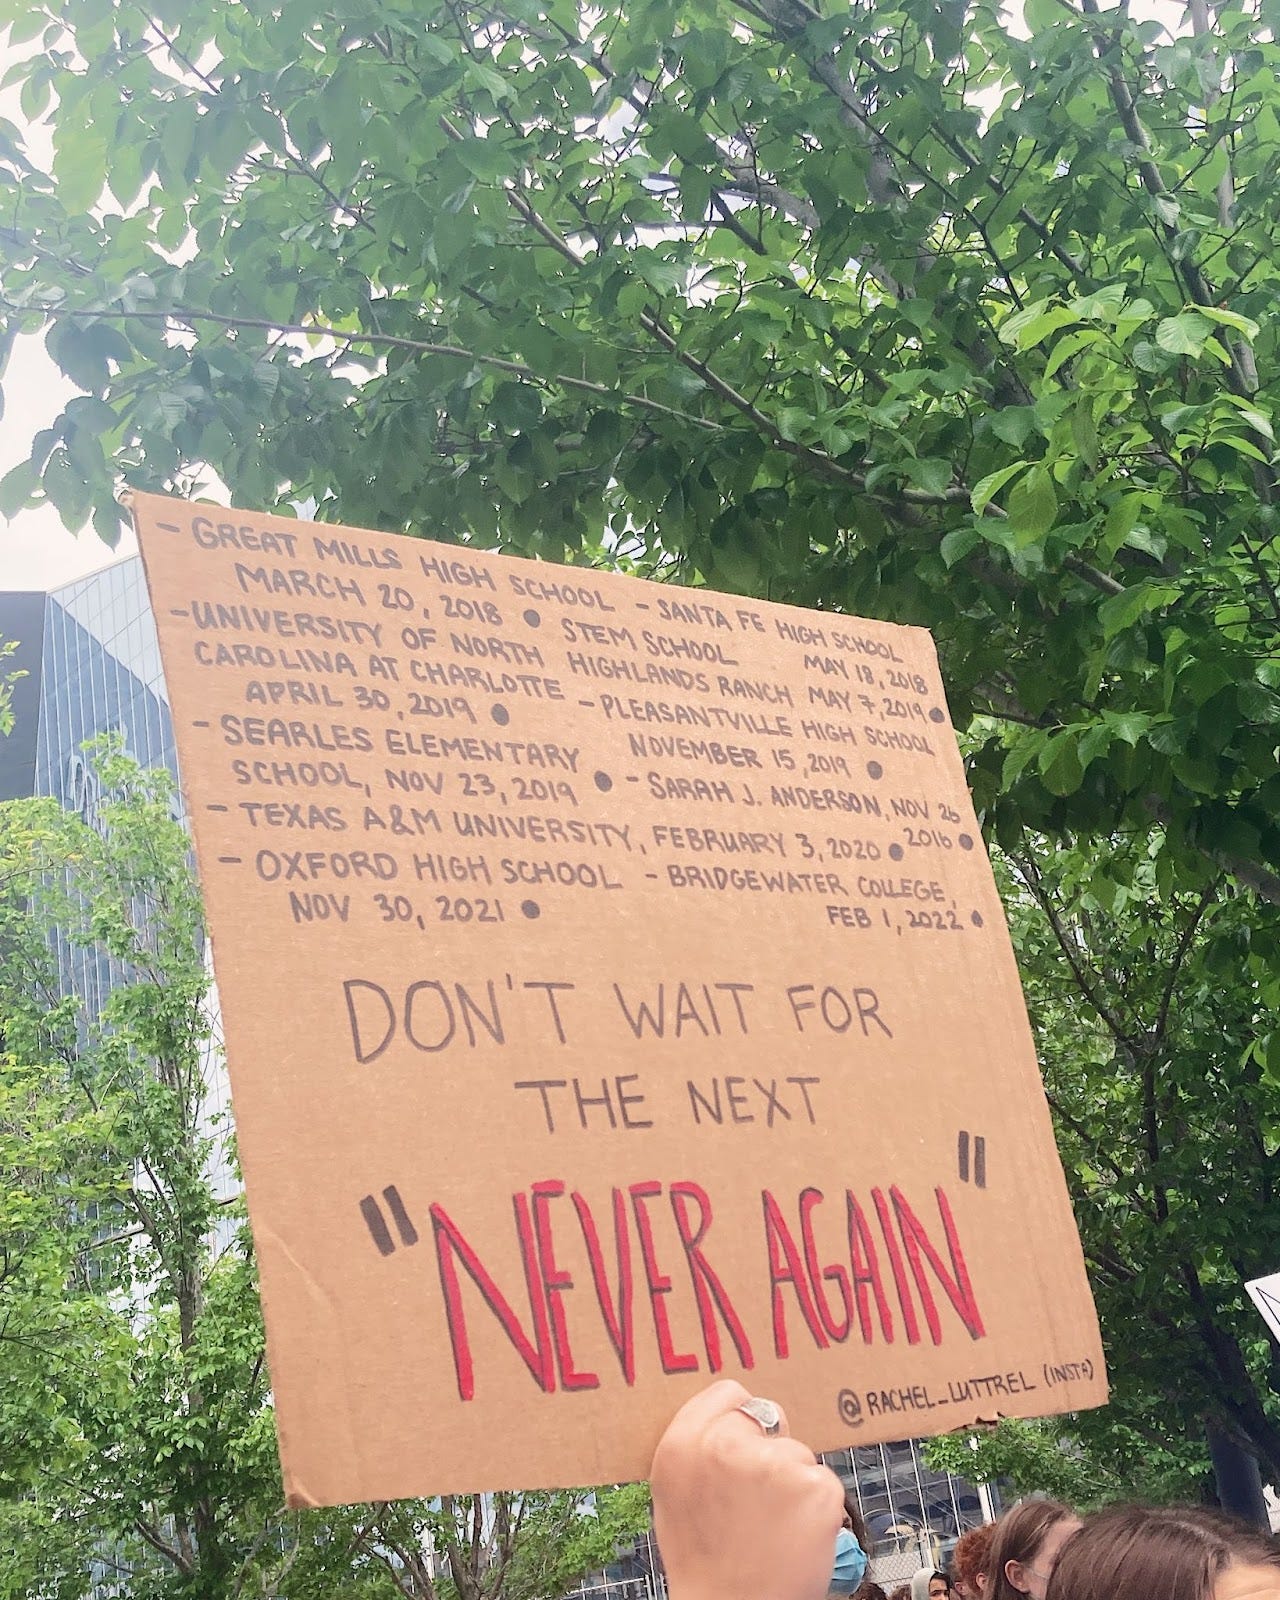 - GREAT MILLS HIGH SCHOOL - SANTA FE HIGH SCHOOL
MARCH 20, 2018 ● STEM SCHOOL MAY 18, 2018
- UNIVERSITY OF NORTH HIGHLANDS RANCH MAY 7, 2019 ●
CAROLINA AT CHARLOTTE - PLEASANTVILLE HIGH SCHOOL
APRIL 30, 2019 ● NOVEMBER 15, 2019 ●
- SEARLES ELEMENTARY
SCHOOL, NOV 23, 2019 ● - SARAH J. ANDERSON, NOV 26
2016 ●
- TEXAS A&M UNIVERSITY, FEBRUARY 3, 2020 ●
- OXFORD HIGH SCHOOL - BRIDGEWATER COLLEGE,
NOV 30, 2021 ● FEB 1, 2022 ●
DON'T WAIT FOR
THE NEXT
"NEVER AGAIN"
@RACHEL_LUTTREL (INSTA)